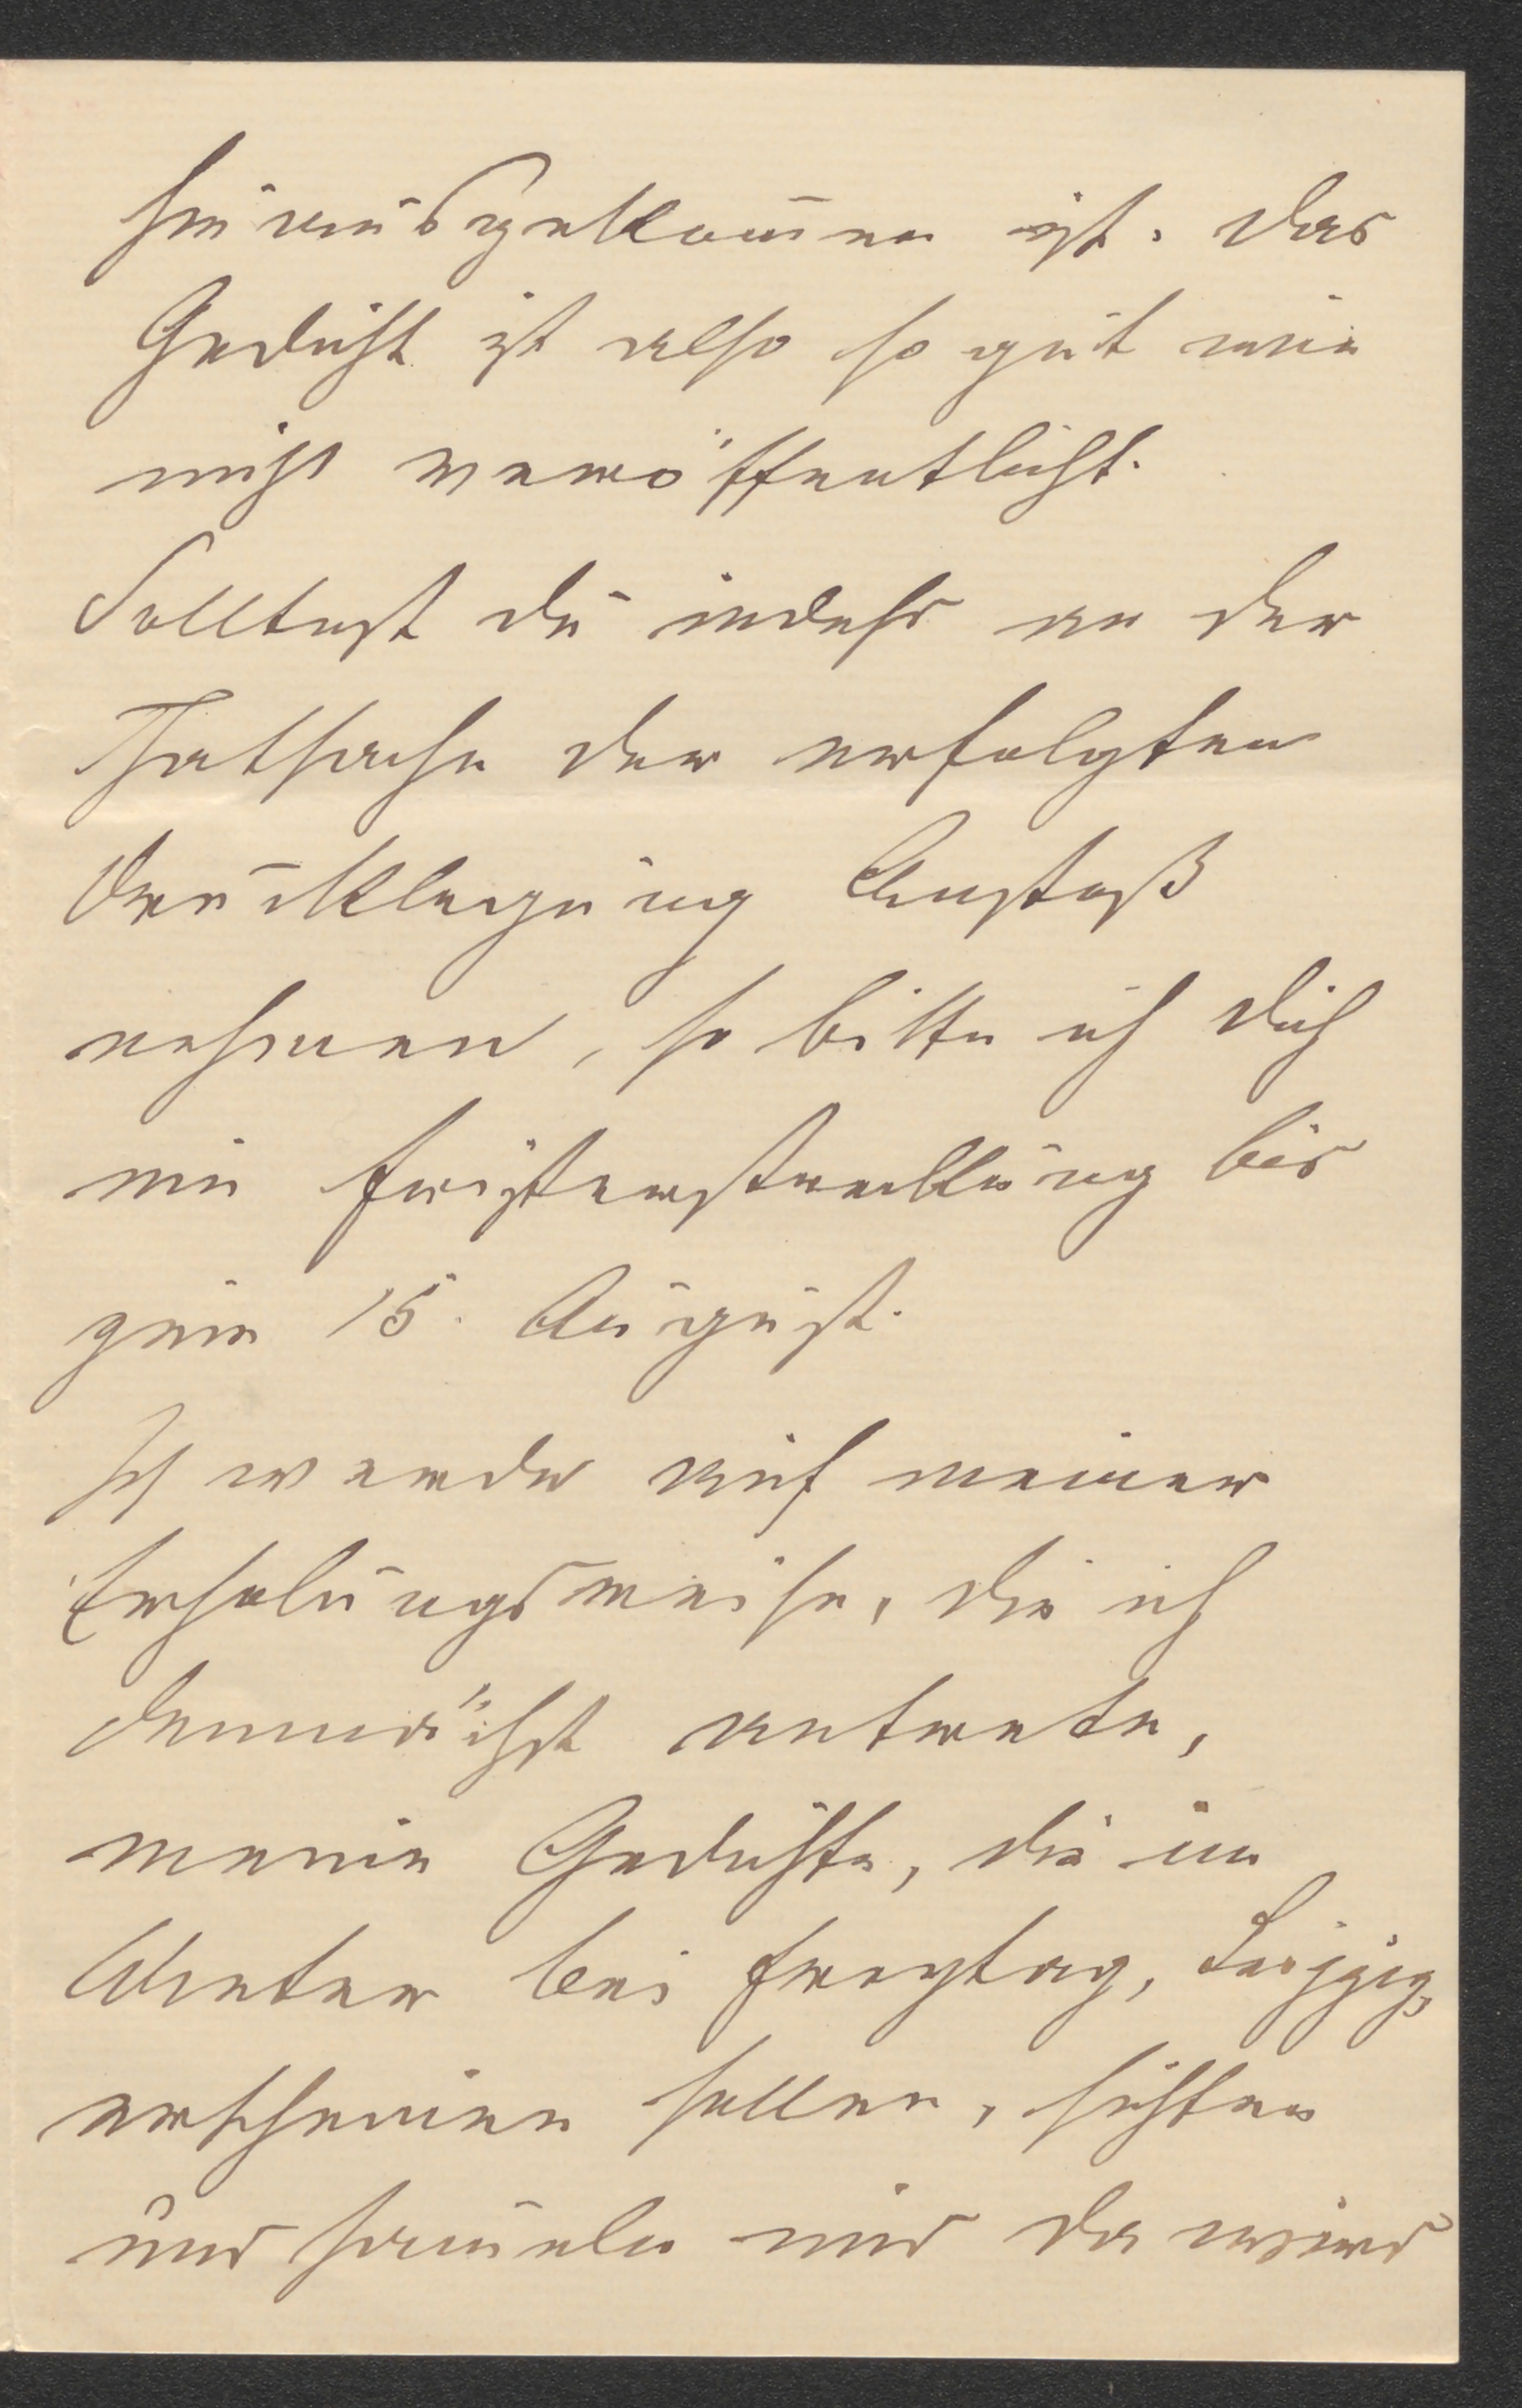 hinausgekom̄en ist. Das
Gedicht ist also so gut wie
nicht veröffentlicht.
Solltest du indeß an der
Thatsache der erfolgten
Drucklegung Anstoß
nehmen, so bitte ich dich
um Fristerstreckung bis
zum 15. August.
Ich werde auf meiner
Erholungsreise, die ich
demnächst antrete,
meine Gedichte, die im
Winter bei Freytag, Leipzig,
erscheinen sollen, sichten
und sam̄eln und da wird